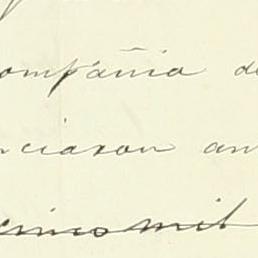 ompañia de
nciaron an
cinco mil